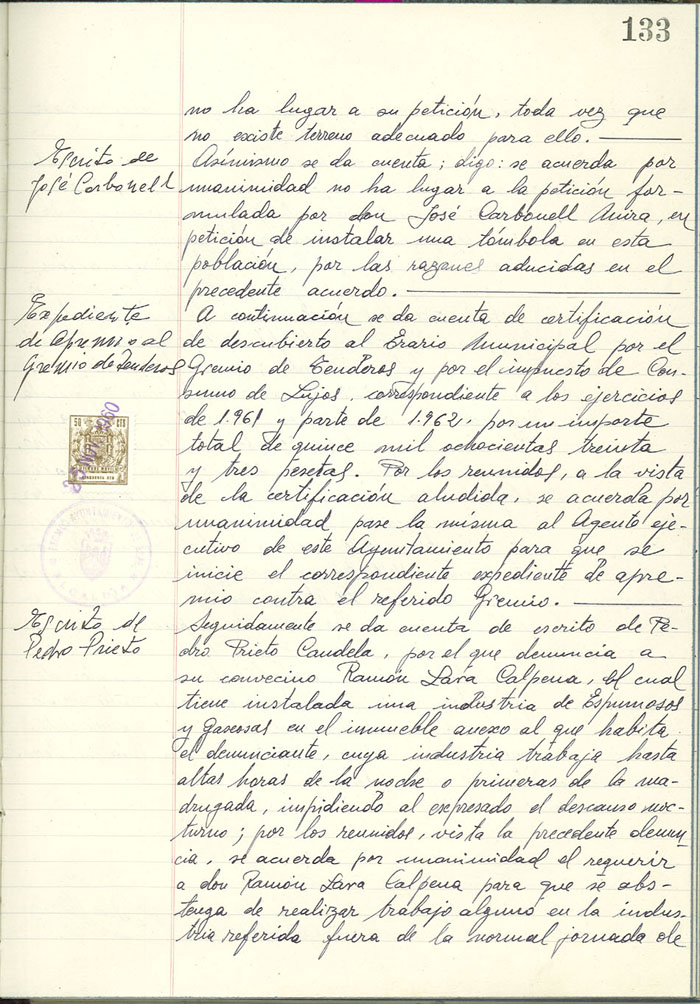 133
no ha lugar a su petición, toda vez que
no existe terreno adecuado para ello.
Escrito de
José Carbonell
Asímismo se da cuenta; digo: se acuerda por
unanimidad no ha lugar a la petición for-
mulada por don José Carbonell Mira, en
petición de instalar una tómbola en esta
población, por las razones aducidas en el
precedente acuerdo.
Expediente
de apremio al
Gremio de Tenderos
A continuación se da cuenta de certificación
de descubierto al Erario Municipal por el
Gremio de Tenderos y por el impuesto de Con-
sumo de Lujos, correspondiente a los ejercicios
de 1.961 y parte de 1.962, por un importe
total de quince mil ochocientas treinta
y tres pesetas. Por los reunidos, a la vista
de la certificación aludida, se acuerda por
unanimidad pase la misma al Agente eje-
cutivo de este Ayuntamiento para que se
inicie el correspondiente expediente de apre-
mio contra el referido Gremio.
50 CTS
NOV 1960
Escrito de
Pedro Prieto
Seguidamente se da cuenta de escrito de Pe-
dro Prieto Candela, por el que denuncia a
su convecino Ramón Lara Calpena, el cual
tiene instalada una industria de Espumosos
y Gaseosas en el inmueble anexo al que habita
el denunciante, cuya industria trabaja hasta
altas horas de la noche o primeras de la ma-
drugada, impidiendo al expresado el descanso noc-
turno; por los reunidos, vista la precedente denun-
cia, se acuerda por unanimidad el requerir
a don Ramón Lara Calpena para que se abs-
tenga de realizar trabajo alguno en la indus-
tria referida fuera de la normal jornada de